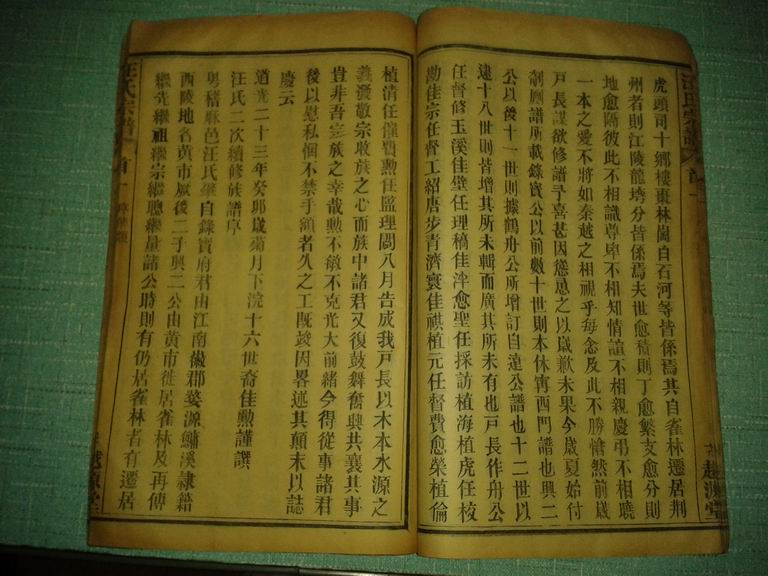 汪氏宗譜
首一
越源堂
虎頭司十鄉樓棗林崗自石河等皆係焉其自雀林遷居荆
州者則江陵龍塆分皆係焉夫世愈積則丁愈繁支愈分則
地愈隔彼此不相識尊卑不相知情誼不相親慶弔不相曉
一本之愛不將如秦越之相視乎每念及此不勝愴然前歲
戸長謀欲修譜予喜甚因慫恿之以歲歉未果今歲夏始付
剞劂譜所載錄實公以前數十世則本休寗西門譜也興二
公以後十一世則據鶴舟公所增訂自遠公譜也十二世以
逮十八世則皆增其所未輯而廣其所未有也戸長作舟公
任督修玉溪佳壁任理稿佳泮愈聖任採訪植海植虎任校
勘佳宗任督工紹唐步青濟寰佳祺植元任督費愈榮植倫
植清任催費勲任監理閱八月告成我戸長以木本水源之
義發敬宗收族之心而族中諸君又復鼓舞奮興共襄其事
豈非吾宗族之幸哉勲不敏不克光大前緒今得從事諸君
後以慰私悃不禁手額者久之工旣竣因畧述其顛末以誌
慶云
道光二十三年癸卯歲菊月下浣十六世裔佳勲謹譔
汪氏二次續修族譜序
粤稽麻邑汪氏繼自錄實府君由江南徽郡婺源鱅溪隷籍
西陵地名黄市厥後二子興二公由黄市徙居雀林及再傳
繼先繼祖繼宗繼聰繼量諸公時則有仍居雀林者有遷居
汪氏宗譜
首一
越源堂